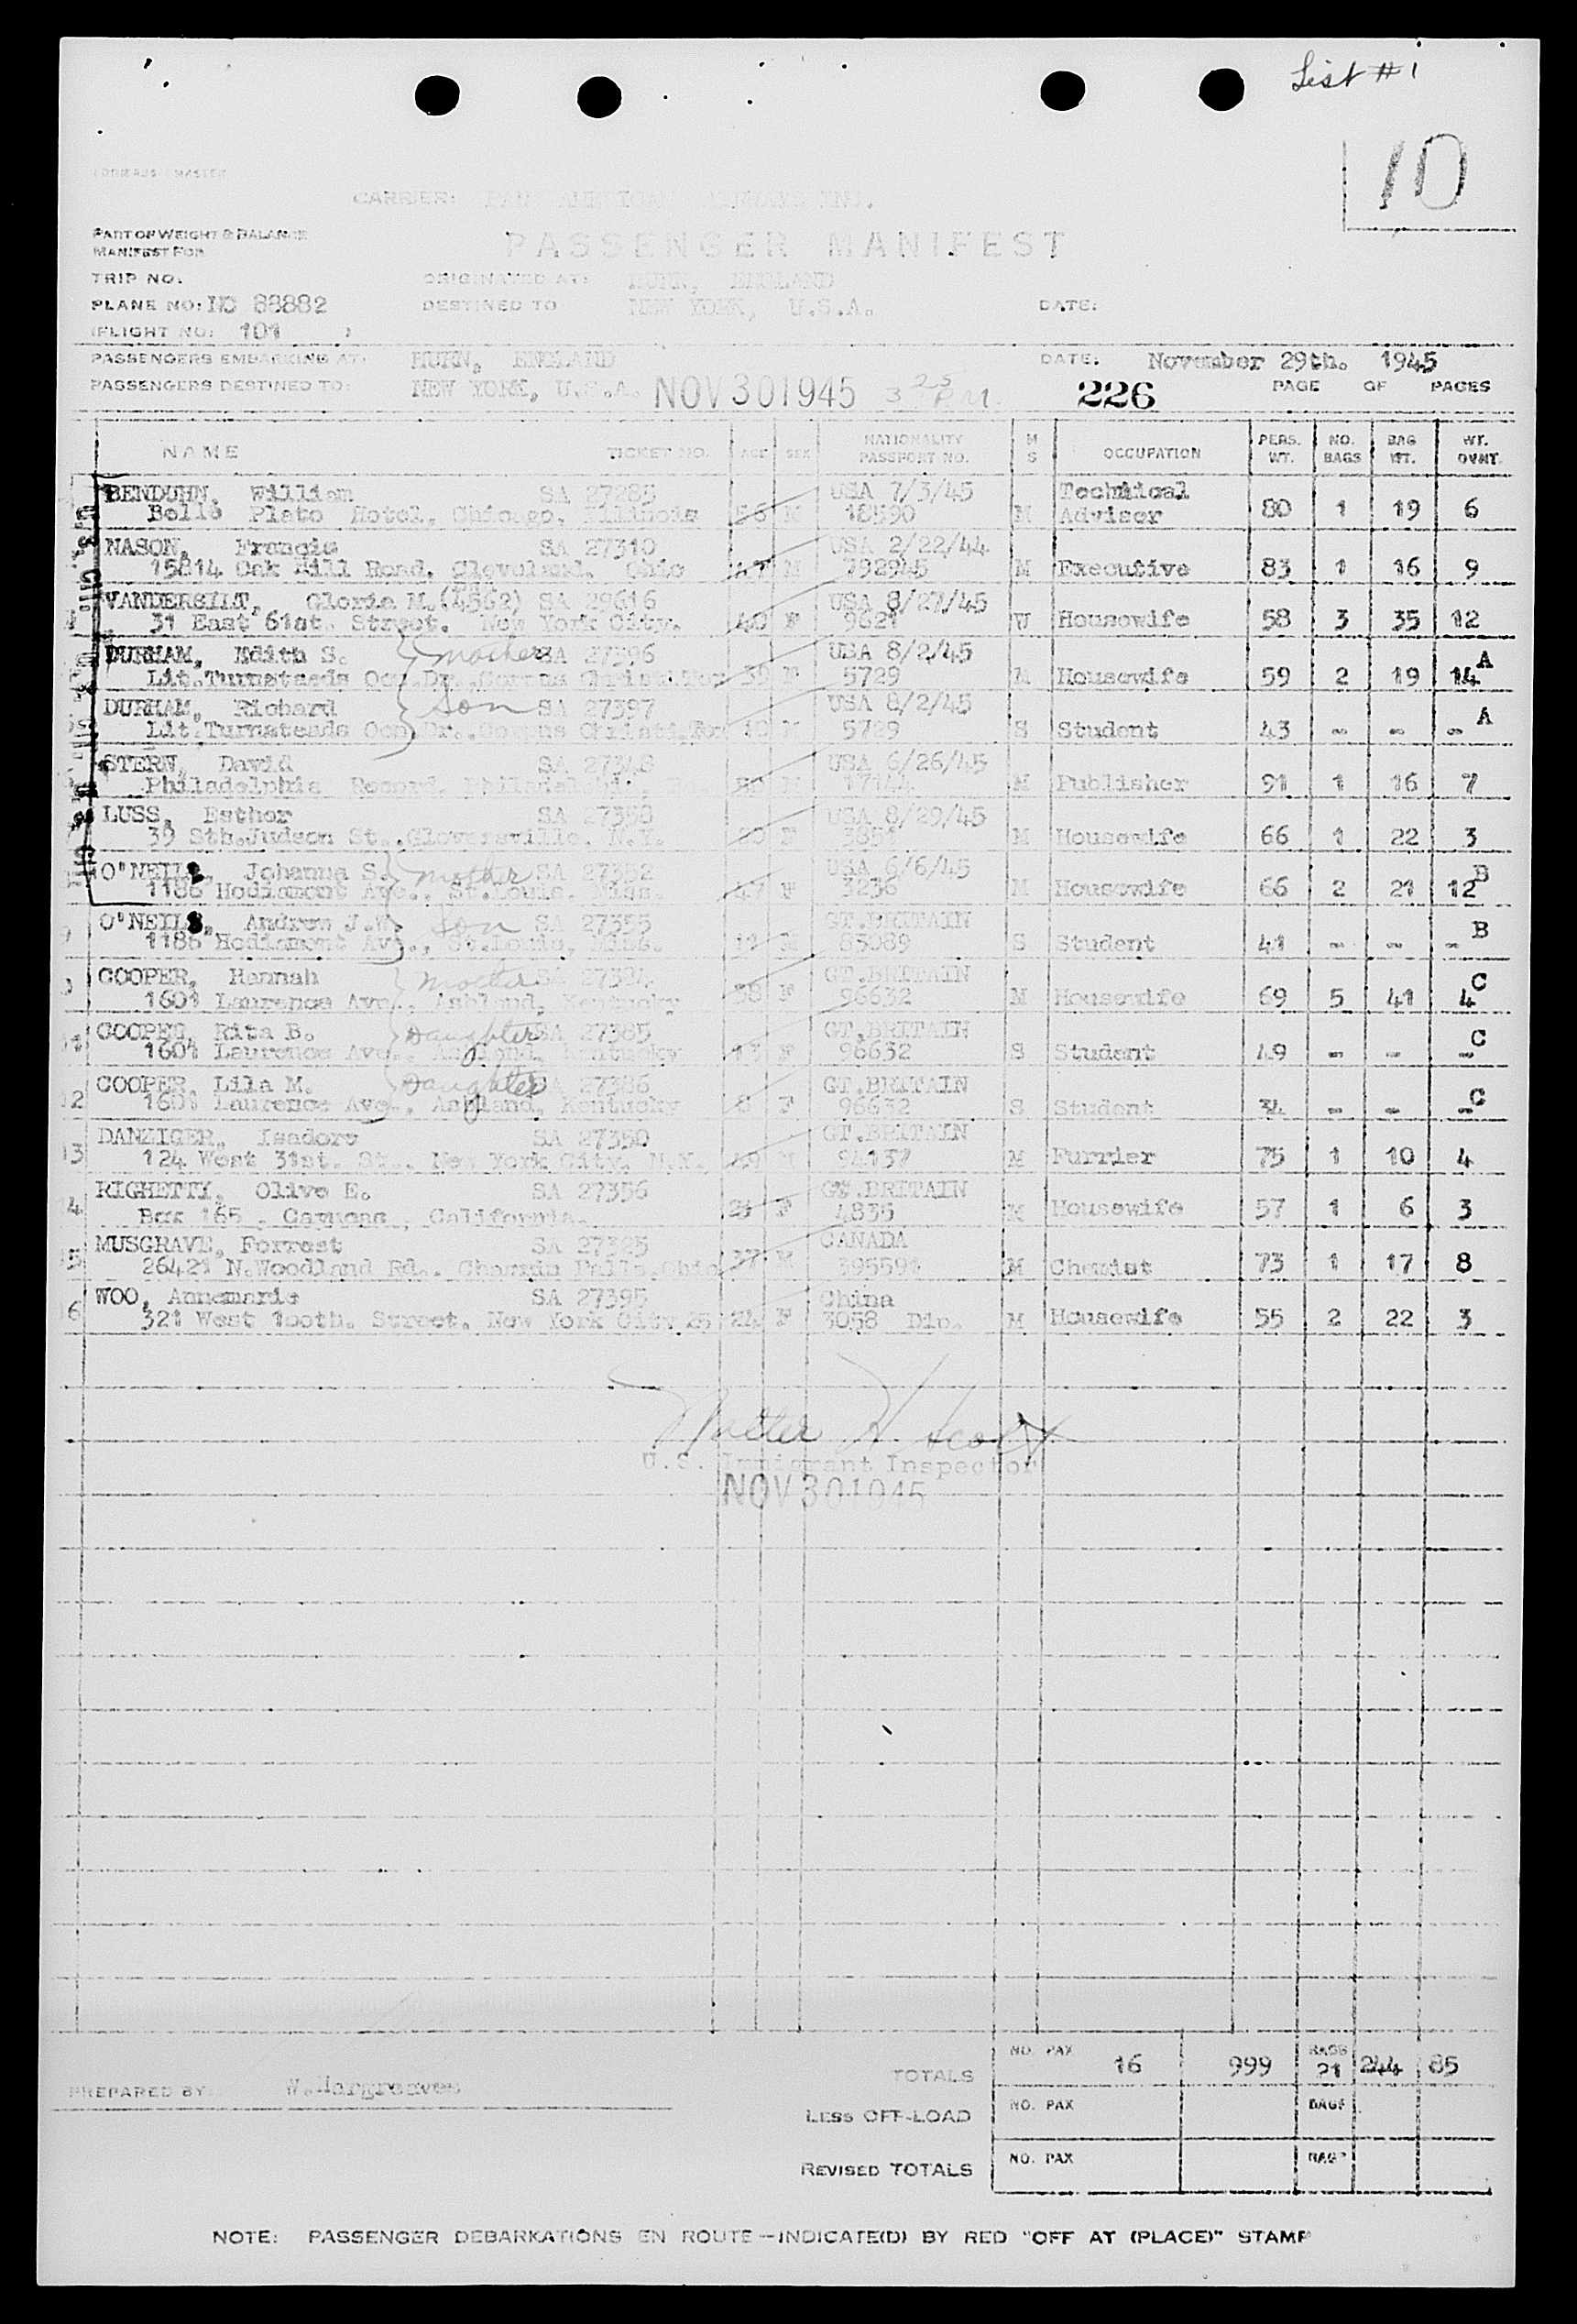 List #1
10
CARRIER: PAN AMERICAN AIRWAYS INC.
PART OF WEIGHT & BALANCE
MANIFEST FOR
PASSENGER MANIFEST
TRIP NO. ORIGINATED AT: HURN, ENGLAND
PLANE NO: NC 88882 DESTINED TO NEW YORK, U.S.A. DATE:
(FLIGHT NO: 101 )
PASSENGERS EMBARKING AT: HURN, ENGLAND DATE: November 29th. 1945
PASSENGERS DESTINED TO: NEW YORK, U.S.A. NOV 30 1945 3 25 P.M. 226 PAGE OF PAGES
NAME TICKET NO. AGE SEX NATIONALITY PASSPORT NO. M S OCCUPATION PERS. WT. NO. BAGS BAG WT. WT. OVNT.
BENDUHN, William SA 27285 USA 7/3/45 Technical
Belle Plato Hotel, Chicago, Illinois 56 M 18590 M Adviser 80 1 19 6
NASON, Francis SA 27310 USA 2/22/44
15814 Oak Hill Road, Cleveland, Ohio 47 M 792945 M Executive 83 1 16 9
VANDERBILT, Gloria M. (4562) SA 29616 USA 8/27/45
31 East 61st. Street. New York City. 40 F 9621 W Housewife 58 3 35 12
DURHAM, Edith S. mother SA 27396 USA 8/2/45
Lit.Turnsteads Ocn.Dr.,Corpus Christi.Tex 39 F 5729 M Housewife 59 2 19 14 A
DURHAM, Richard son SA 27397 USA 8/2/45
Lit.Turnsteads Ocn.Dr.,Corpus Christi,Tex 10 M 5729 S Student 43 - - - A
STERN, David USA 6/26/45
Philadelphia Record, Philadelphia. M Publisher 91 1 16 7
LUSS, Esther SA 27358 USA 8/29/45
39 Sth.Judson St.,Gloversville. N.Y. F M Housewife 66 1 22 3
O'NEILL, Johanna S. mother SA 27352 USA 6/6/45
1186 Hodiamont Ave., St.Louis. Miss. 47 F 3236 M Housewife 66 2 21 12 B
9 O'NEILL, Andrew J.W. son SA 27355 GT.BRITAIN
1186 Hodiamont Ave., St.Louis, Miss. 11 M 83089 S Student 41 - - - B
COOPER, Hannah mother SA 27384 GT.BRITAIN
1601 Laurence Ave., Ashland, Kentucky 38 F 96632 M Housewife 69 5 41 4 C
11 COOPER, Rita B. Daughter SA 27385 GT.BRITAIN
1601 Laurence Ave., Ashland, Kentucky 13 F 96632 S Student 49 - - - C
12 COOPER, Lila M. Daughter SA 27386 GT.BRITAIN
1601 Laurence Ave., Ashland, Kentucky 8 F 96632 S Student 34 - - - C
13 DANZIGER, Isadore SA 27350 GT.BRITAIN
124 West 31st. St., New York City, N.Y. 49 M 94137 M Furrier 75 1 10 4
14 RIGHETTY, Olive E. SA 27356 GT.BRITAIN
Box 165, Cayucas, California. F 4835 M Housewife 57 1 6 3
15 MUSGRAVE, Forrest SA 27325 CANADA
26421 N.Woodland Rd.. Chagrin Falls.Ohio 37 M 395591 M Chemist 73 1 17 8
16 WOO, Annemarie SA 27395 China
321 West 100th. Street, New York City 25 24 F 3058 Dip. M Housewife 55 2 22 3
Walter H. Scott
U.S. Immigrant Inspector
NOV 30 1945
TOTALS NO. PAX 16 999 BAGS 21 244 85
PREPARED BY: W.Hargreaves
LESS OFF-LOAD NO. PAX BAGS
REVISED TOTALS NO. PAX BAGS
NOTE: PASSENGER DEBARKATIONS EN ROUTE — INDICATE(D) BY RED "OFF AT (PLACE)" STAMP